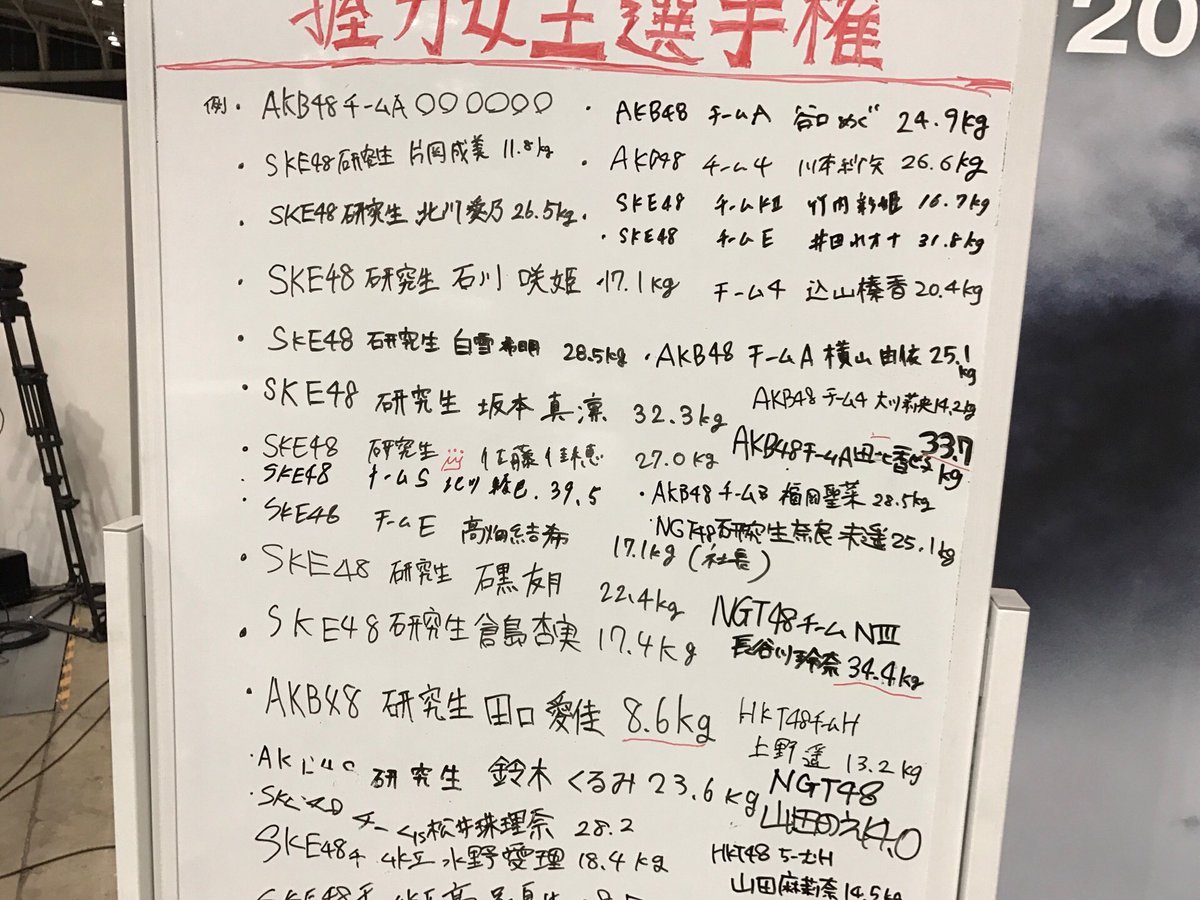 握力女王選手権
20
例・AKB48 チームA 〇〇〇〇〇〇
・SKE48 研究生 片岡成美 11.8kg
・SKE48 研究生 北川愛乃 26.5kg
・SKE48 研究生 石川 咲姫 17.1kg
・SKE48 研究生 白雪希明 28.5kg
・SKE48 研究生 坂本真凛 32.3kg
・SKE48 研究生 佐藤佳穂 27.0kg
・SKE48 チームS 北川綾巴 39.5
・SKE48 チームE 高畑結希 17.1kg (社長)
・SKE48 研究生 石黒友月 22.4kg
・SKE48 研究生 倉島杏実 17.4kg
・AKB48 研究生 田口愛佳 8.6kg
・研究生 鈴木くるみ 23.6kg
・チームS 松井珠理奈 28.2
SKE48 チームKII 水野愛理 18.4kg
SKE48
・AKB48 チームA 谷口めぐ 24.9kg
・AKB48 チーム4 川本紗矢 26.6kg
・SKE48 チームKII 竹内彩姫 16.7kg
・SKE48 チームE 井田レオナ 31.8kg
チーム4 込山榛香 20.4kg
・AKB48 チームA 横山由依 25.1kg
AKB48 チーム4 大川莉央 14.2kg
AKB48 チームA 33.7kg
・AKB48 チーム8 福岡聖菜 28.5kg
・NGT48 研究生 奈良未遥 25.1kg
NGT48 チームNIII
長谷川玲奈 34.4kg
HKT48 チームH
上野遥 13.2kg
NGT48
山田のえ
HKT48 チームH
山田麻莉奈 14.5kg